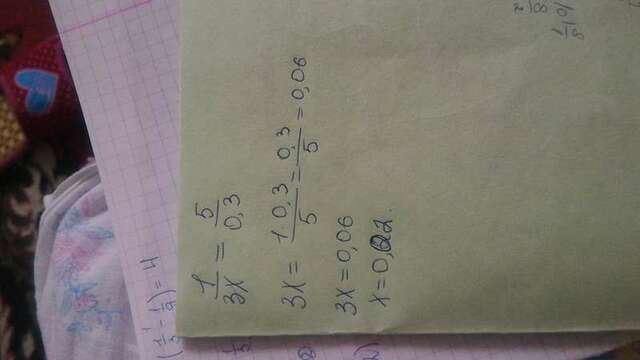 (1/3 - 1/9) = 4
1/3x = 5/0,3
3x = 1·0,3/5 = 0,3/5 = 0,06
3x = 0,06
x = 0,02.